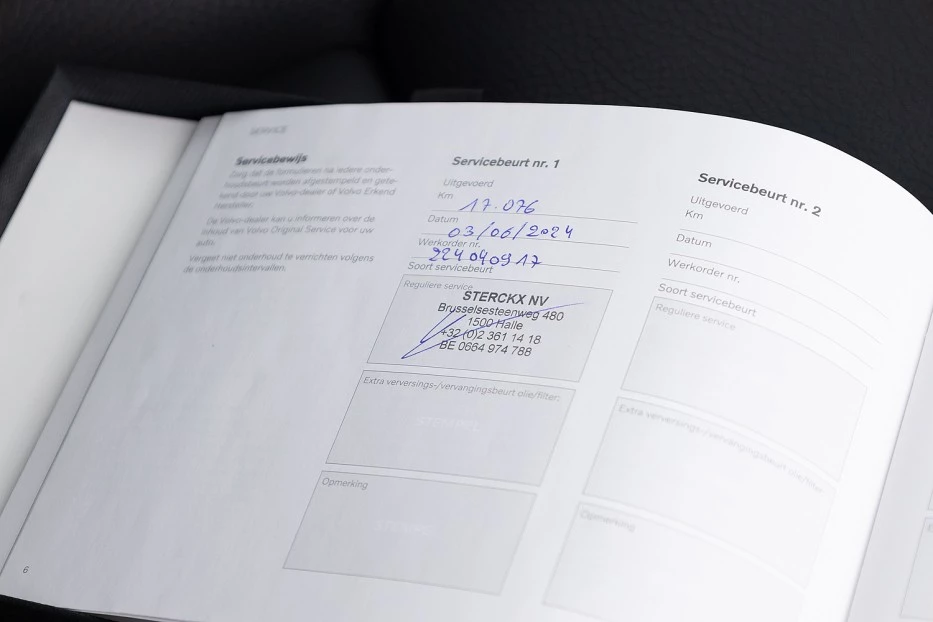 SERVICE
Servicebewijs
Zorg dat de formulieren na iedere onder-
houdsbeurt worden afgestempeld en gete-
kend door uw Volvo-dealer of Volvo Erkend
De Volvo-dealer kan u informeren over de
inhoud van Volvo Original Service voor uw
auto.
Vergeet niet onderhoud te verrichten volgens
de onderhoudsintervallen.
Servicebeurt nr. 1
Uitgevoerd
Km 17.076
Datum 03/06/2024
Werkorder nr. 224040917
Soort servicebeurt
Reguliere service
STERCKX NV
Brusselsesteenweg 480
1500 Halle
+32(0)2 361 14 18
BE 0664 974 788
Extra verversings-/vervangingsbeurt olie/filter:
Opmerking
Servicebeurt nr. 2
Uitgevoerd
Km
Datum
Werkorder nr.
Soort servicebeurt
Reguliere service
Extra verversings-/vervangingsbeurt olie/filter:
Opmerking
6